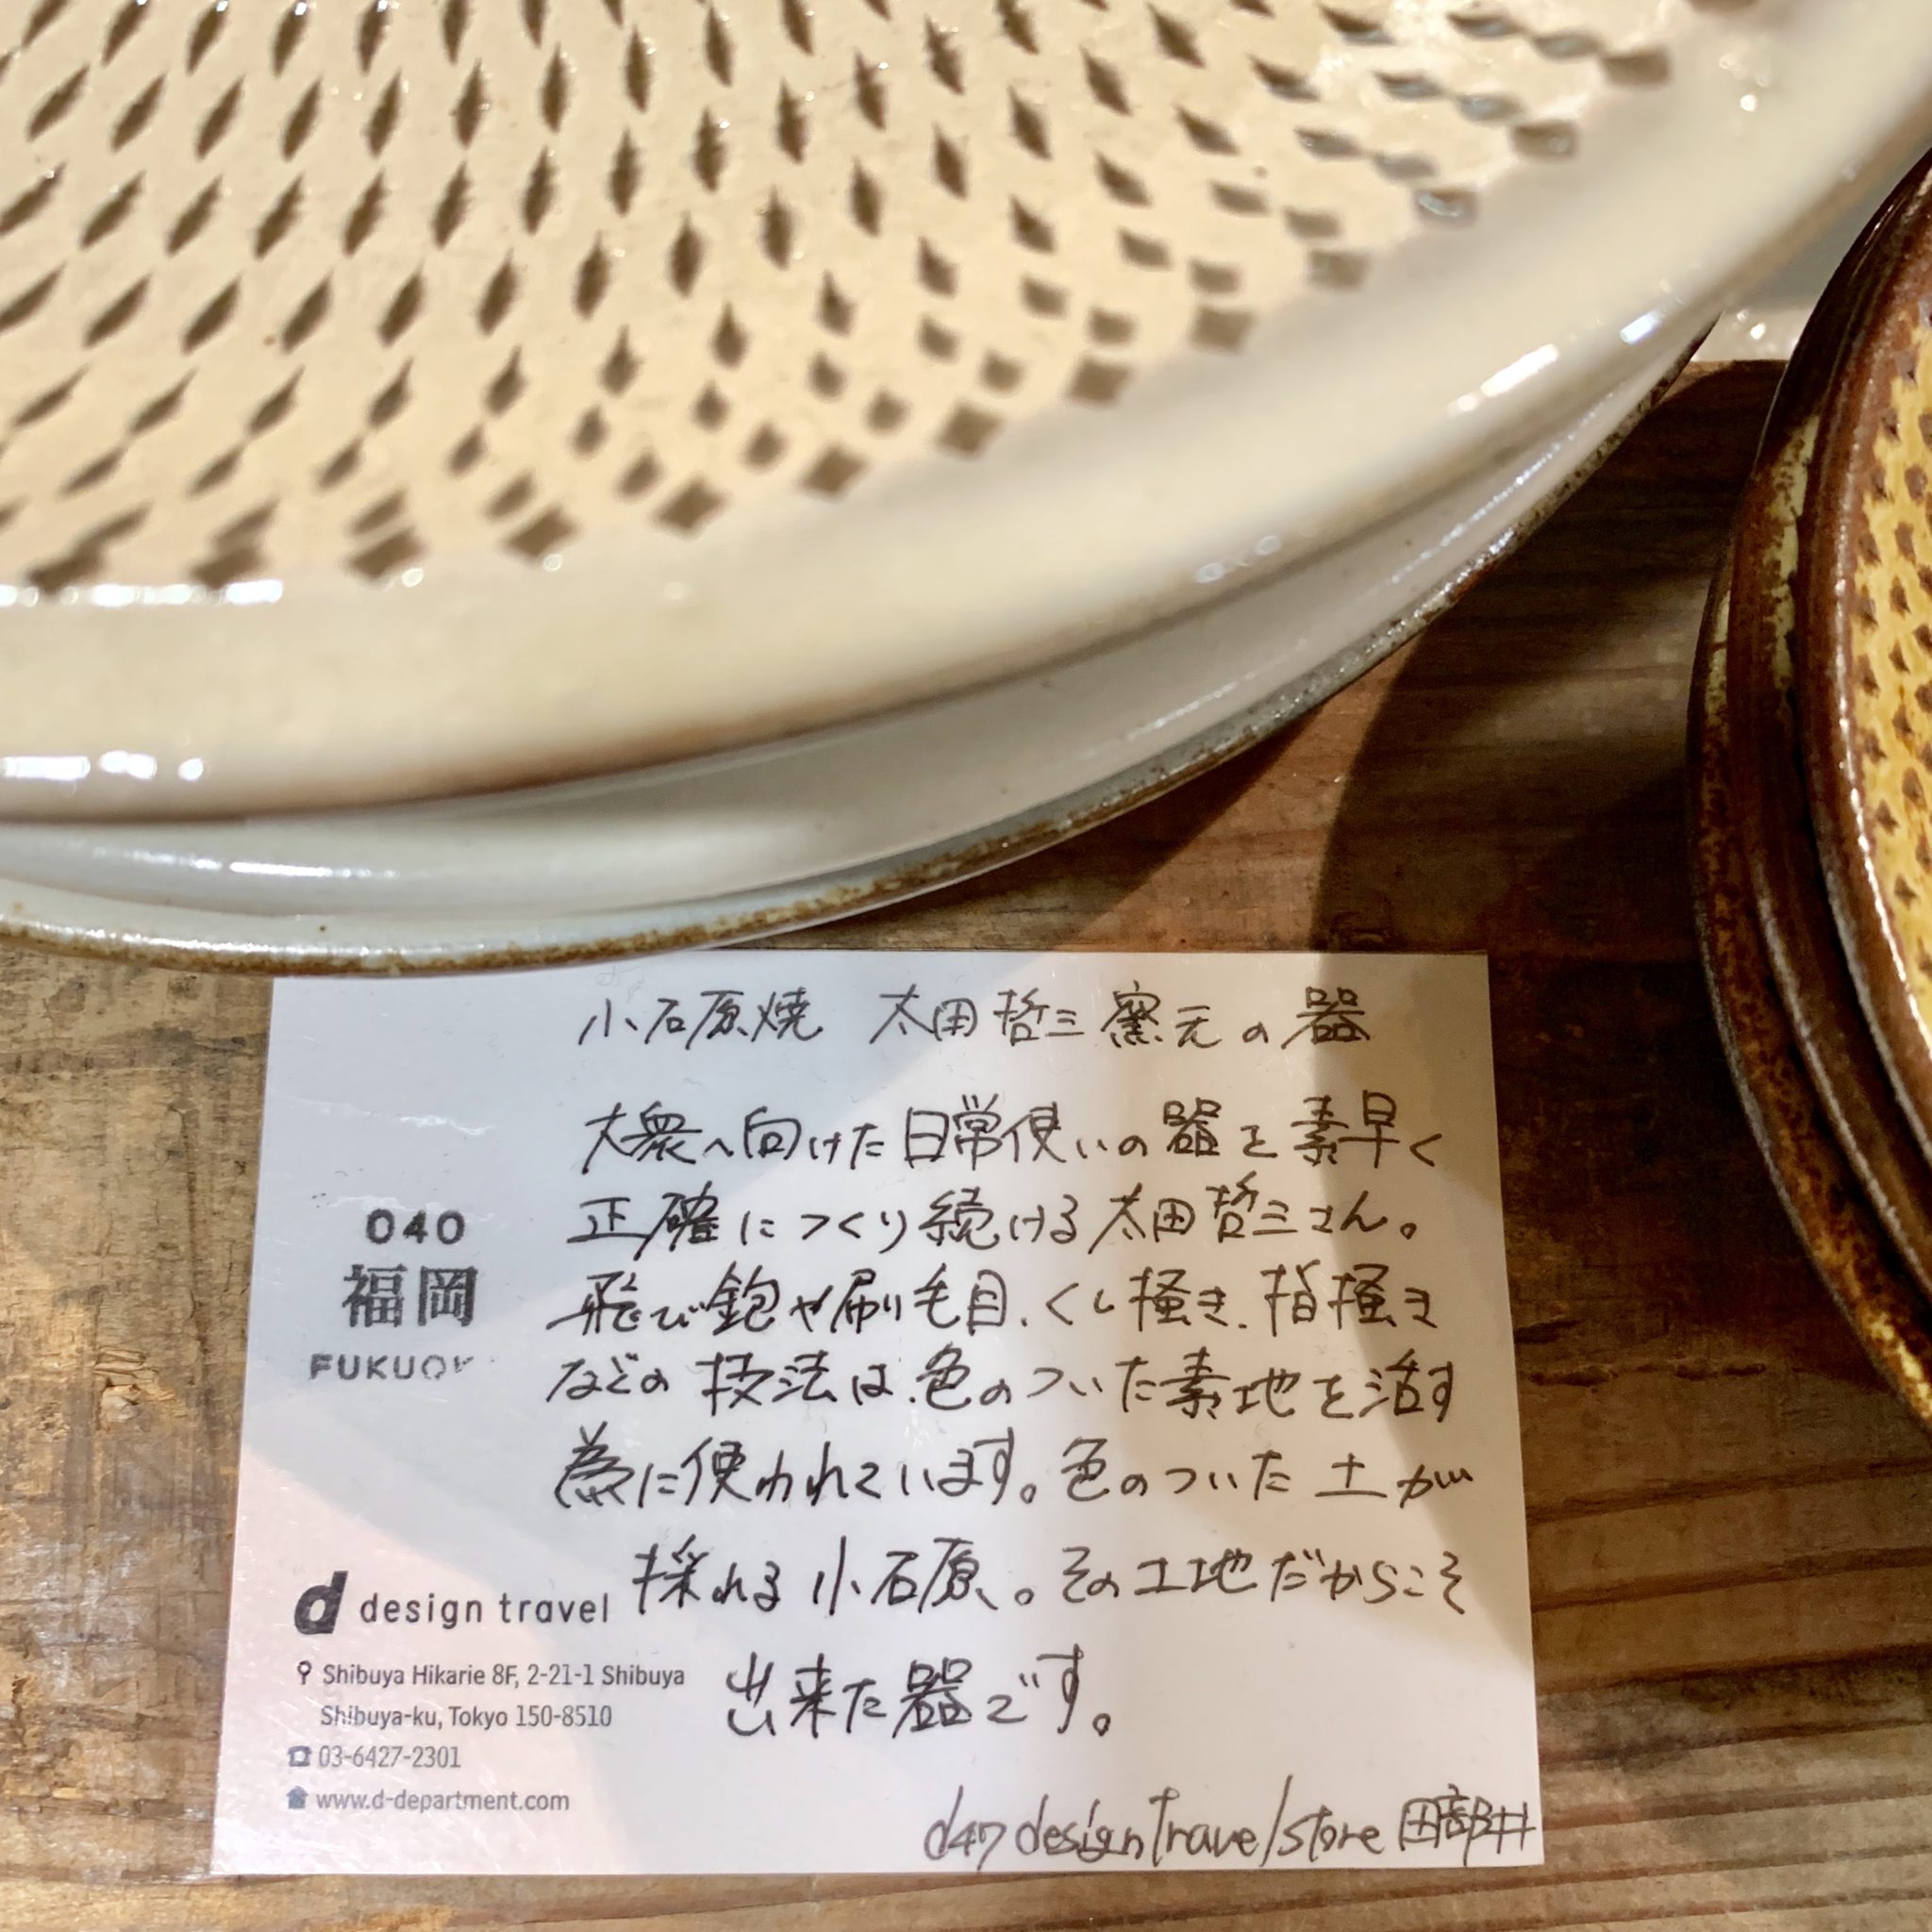 小石原焼 太田哲三窯元の器
大衆へ向けた日常使いの器を素早く
正確につくり続ける太田哲三さん。
飛び鉋や刷毛目、くし掻き、指掻き
などの技法は、色のついた素地を活す
為に使われています。色のついた土が
採れる小石原。その土地だからこそ
出来た器です。
d47 design travel store 田部井
040
福岡
FUKUOK
d design travel
Shibuya Hikarie 8F, 2-21-1 Shibuya
Shibuya-ku, Tokyo 150-8510
03-6427-2301
www.d-department.com